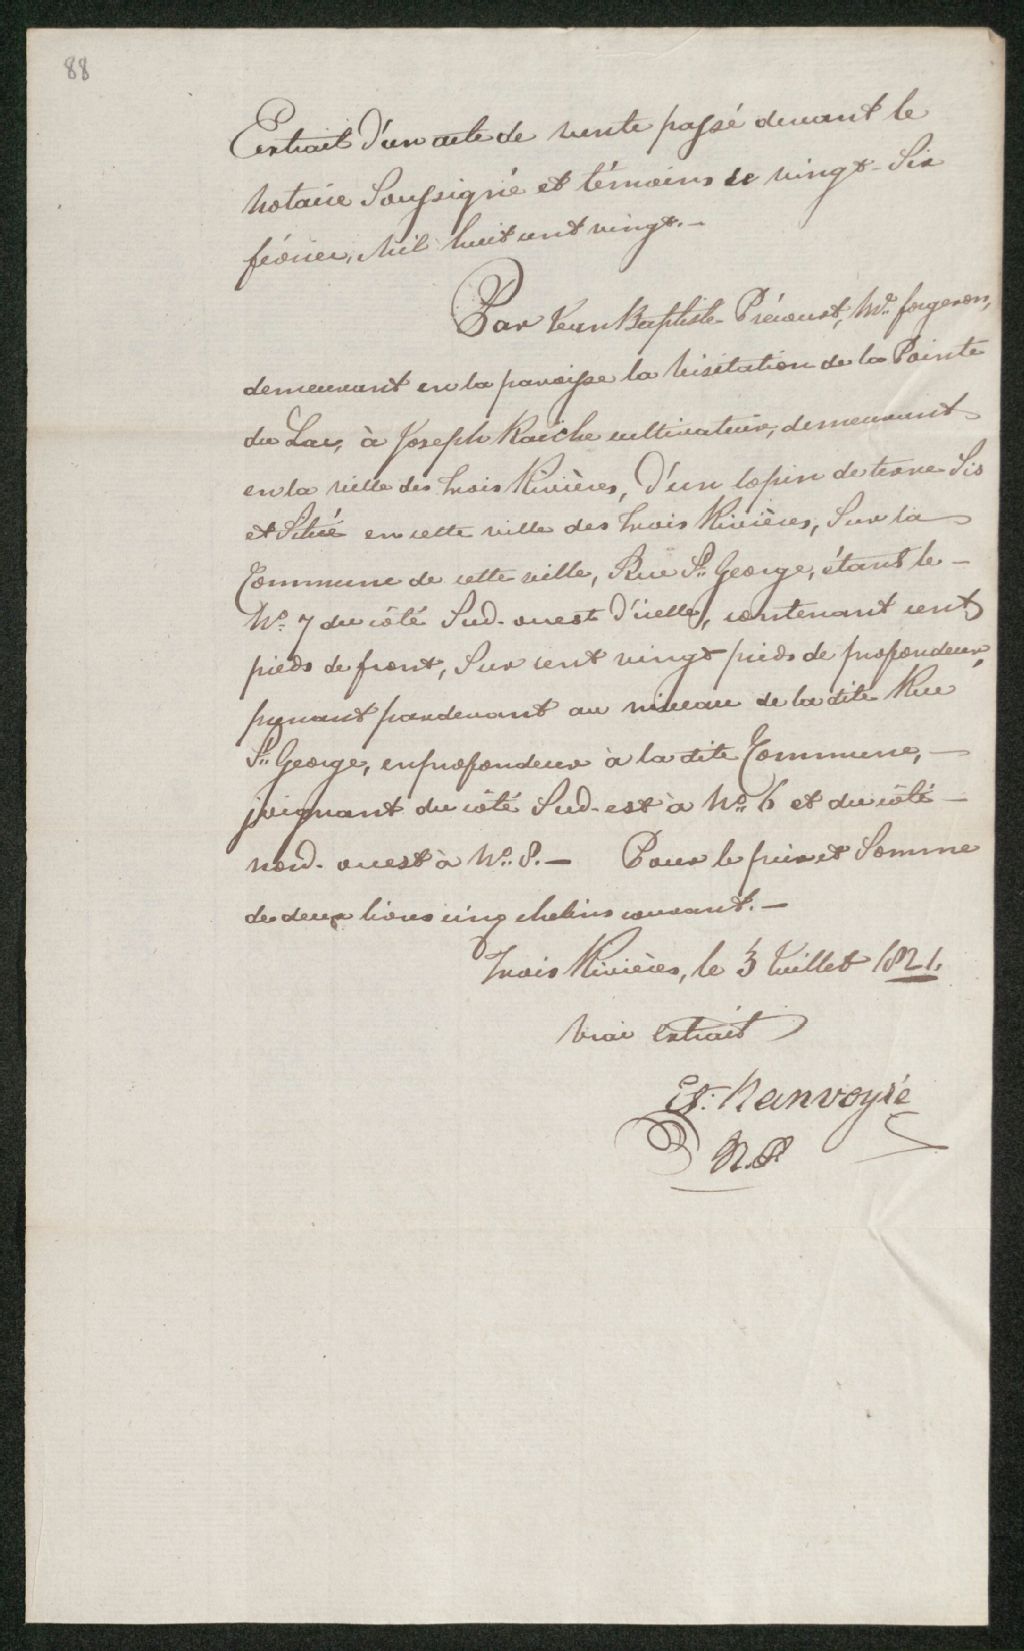 88
Extrait d'un acte de vente passé devant le
notaire Soussigné et témoins le vingt-Six
février, Mil huit cent vingt. —
Par Jean Baptiste Précourt, Me. forgeron,
demeurant en la paroisse la Visitation de la Pointe
du Lac, à Joseph Raiche cultivateur, demeurant
en la ville des Trois Rivières, D'un lopin de terre Sis
et Situé en cette ville des Trois Rivières, Sur la
Commune de cette ville, Rue St. George, étant le —
No. 7 du côté Sud-ouest D'icelle, contenant cent
pieds de front, Sur cent vingt pieds de profondeur,
prenant pardevant au niveau de la dite Rue
St. George, enprofondeur à la dite Commune, —
joignant du côté Sud-est à No. 6 et du côté —
nord-ouest à No. 8. — Pour le prix et Somme
de deux livres cinq chelins courant. —
Trois Rivières, le 3 Juillet 1821.
Vrai Extrait
Et. Ranvoyzé
N.P.